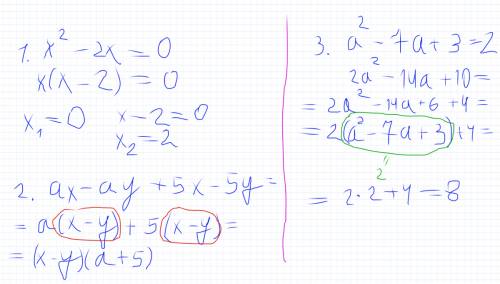 1. x² - 2x = 0
x(x - 2) = 0
x₁ = 0 x - 2 = 0
x₂ = 2
2. ax - ay + 5x - 5y =
= a(x - y) + 5(x - y) =
= (x - y)(a + 5)
3. a² - 7a + 3 = 2
2a² - 14a + 10 =
= 2a² - 14a + 6 + 4 =
= 2(a² - 7a + 3) + 4 =
2
= 2 · 2 + 4 = 8